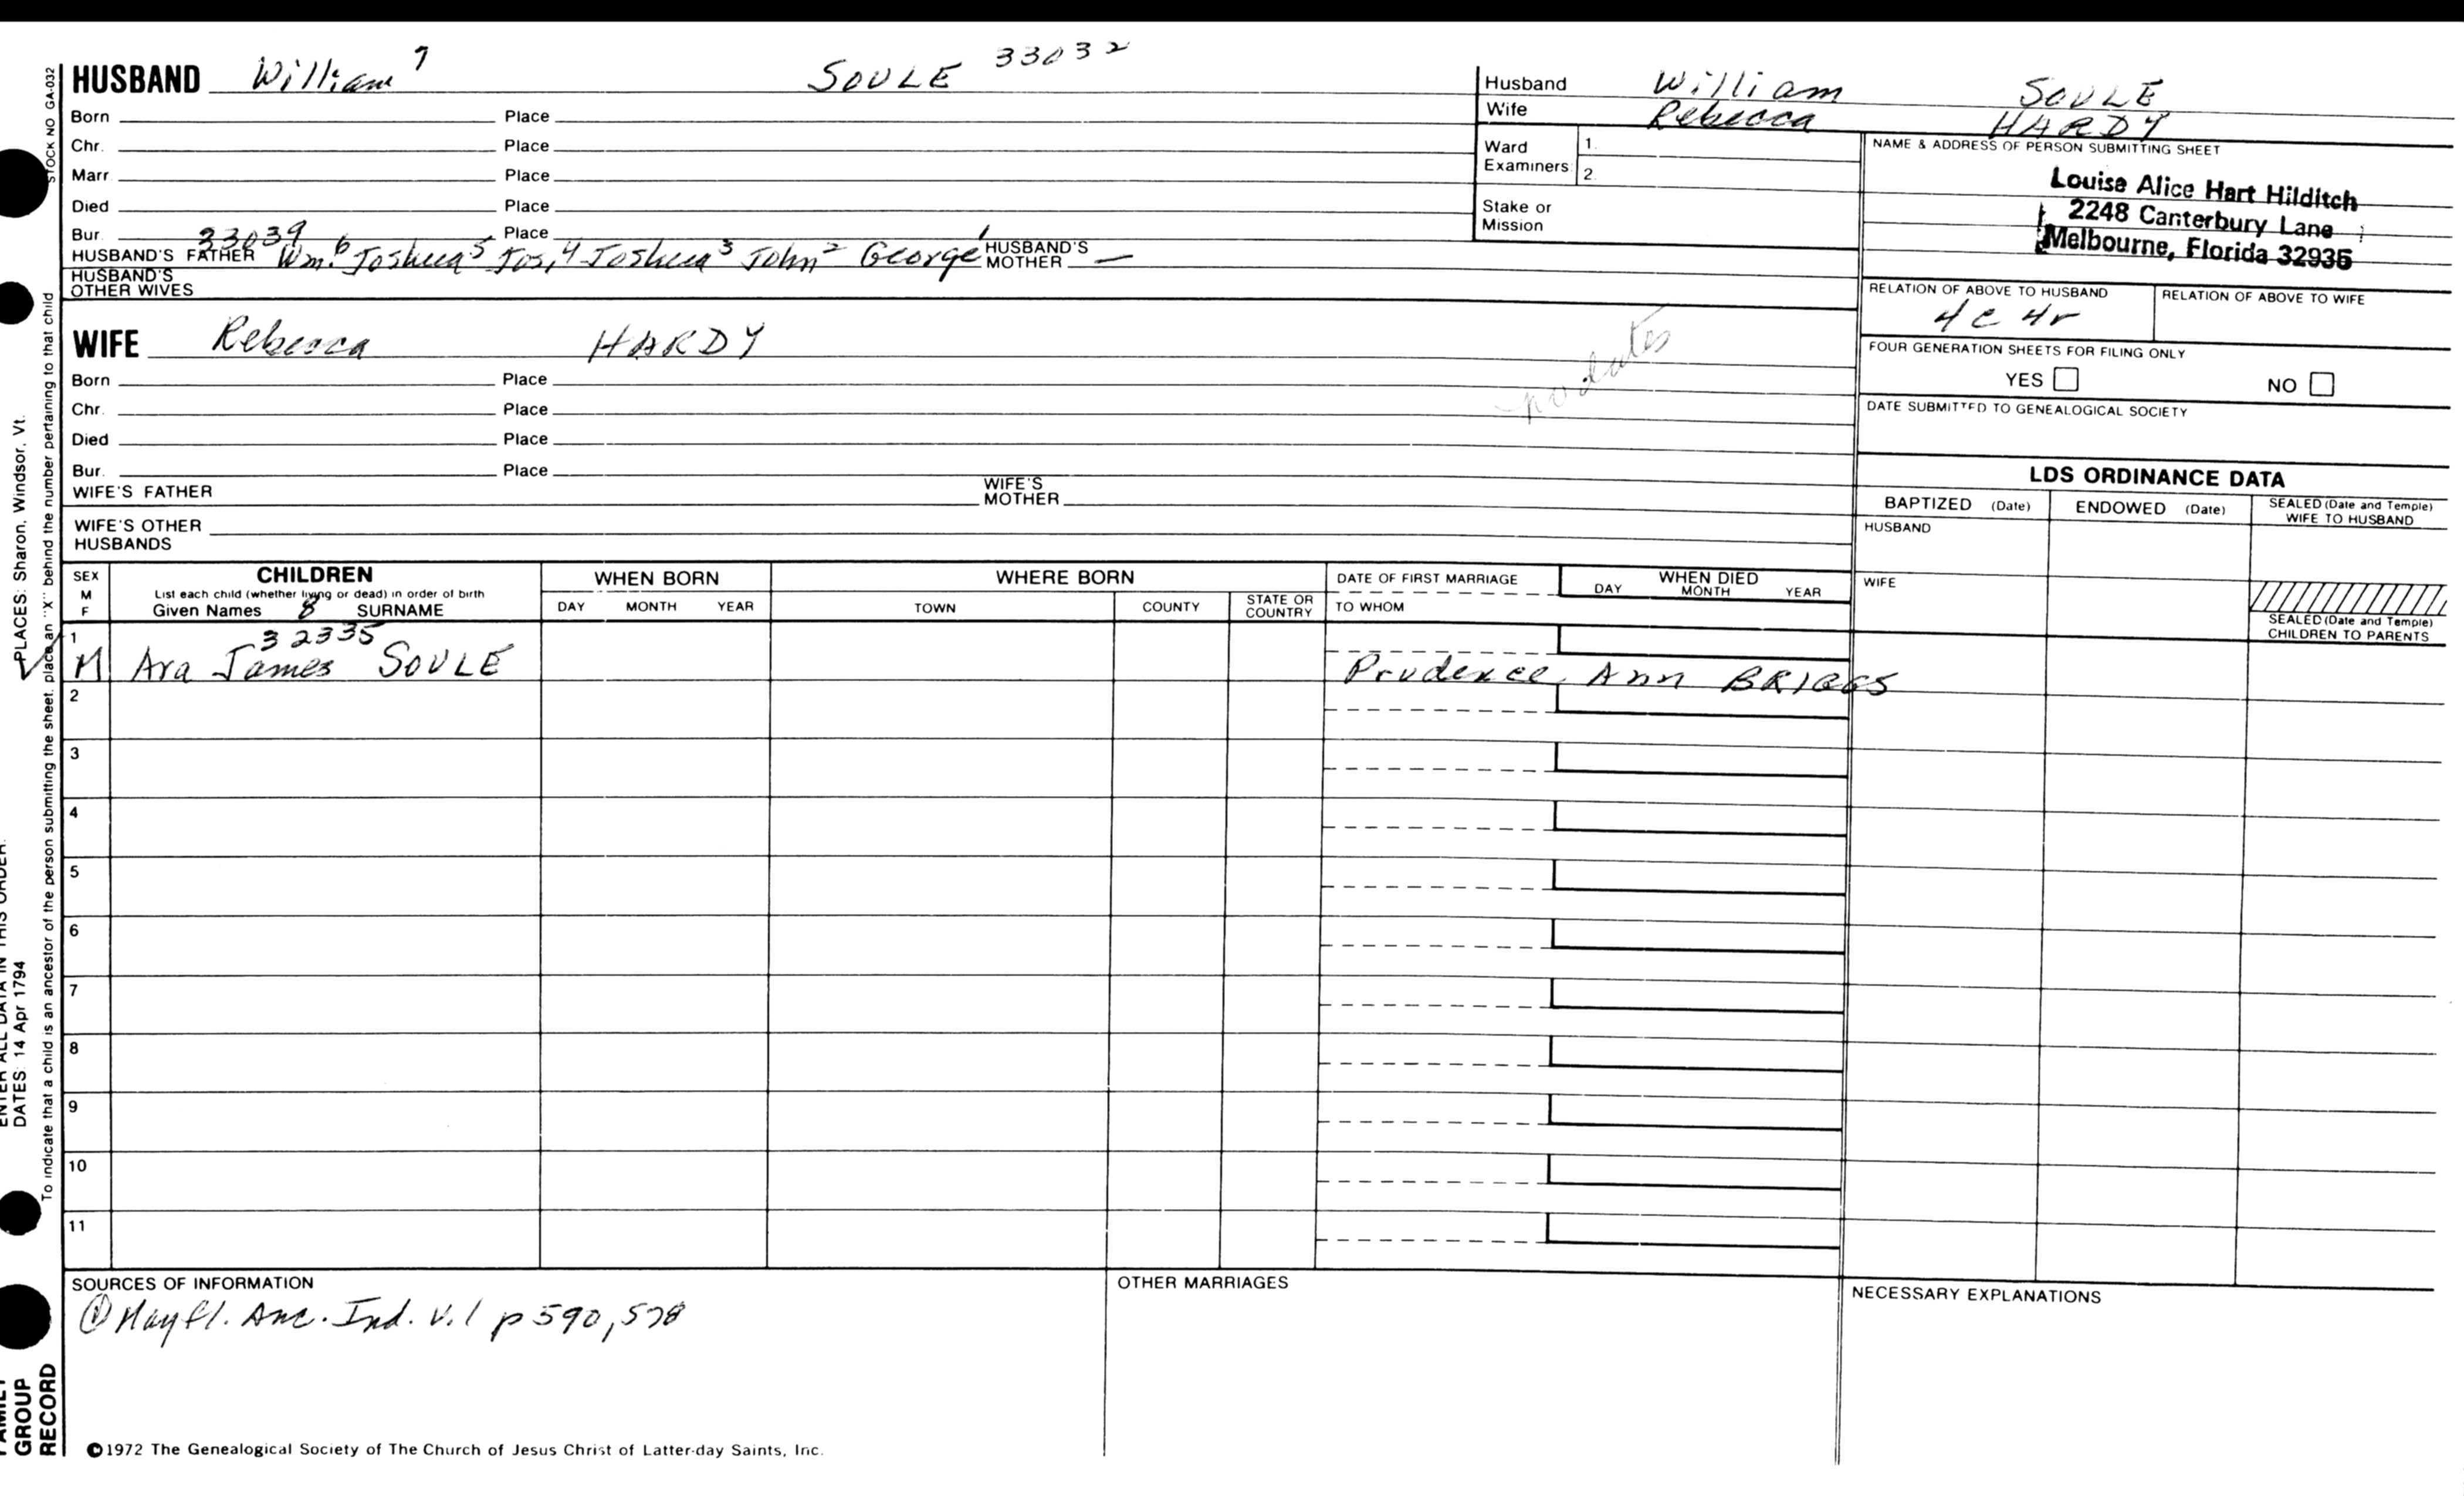 HUSBAND William 7 SOULE 33032
Born Place
Chr. Place
Marr Place
Died Place
Bur. Place
33039
HUSBAND'S FATHER Wm.6 Joshua5 Jos,4 Joshua3 John2 George1 HUSBAND'S MOTHER —
HUSBAND'S OTHER WIVES
Husband William SOULE
Wife Rebecca HARDY
Ward Examiners 1.
2.
Stake or Mission
NAME & ADDRESS OF PERSON SUBMITTING SHEET
Louise Alice Hart Hilditch
2248 Canterbury Lane
Melbourne, Florida 32935
RELATION OF ABOVE TO HUSBAND
4c 4r
RELATION OF ABOVE TO WIFE
FOUR GENERATION SHEETS FOR FILING ONLY
YES NO
DATE SUBMITTED TO GENEALOGICAL SOCIETY
WIFE Rebecca HARDY
no dates
Born Place
Chr. Place
Died Place
Bur. Place
WIFE'S FATHER WIFE'S MOTHER
WIFE'S OTHER HUSBANDS
LDS ORDINANCE DATA
BAPTIZED (Date) ENDOWED (Date) SEALED (Date and Temple) WIFE TO HUSBAND
HUSBAND
WIFE
SEALED (Date and Temple) CHILDREN TO PARENTS
SEX M F
CHILDREN
List each child (whether living or dead) in order of birth
Given Names 8 SURNAME
WHEN BORN
DAY MONTH YEAR
WHERE BORN
TOWN COUNTY STATE OR COUNTRY
DATE OF FIRST MARRIAGE
TO WHOM
WHEN DIED
DAY MONTH YEAR
1 32335
M Ara James SOULE Prudence Ann BRIGGS
2
3
4
5
6
7
8
9
10
11
SOURCES OF INFORMATION
① Mayfl. Anc. Ind. v.1 p 590, 578
OTHER MARRIAGES
NECESSARY EXPLANATIONS
©1972 The Genealogical Society of The Church of Jesus Christ of Latter-day Saints, Inc.
STOCK NO GA-032
To indicate that a child is an ancestor of the person submitting the sheet, place an "X" behind the number pertaining to that child
PLACES: Sharon, Windsor, Vt.
ENTER ALL DATA IN THIS ORDER:
DATES: 14 Apr 1794
FAMILY GROUP RECORD